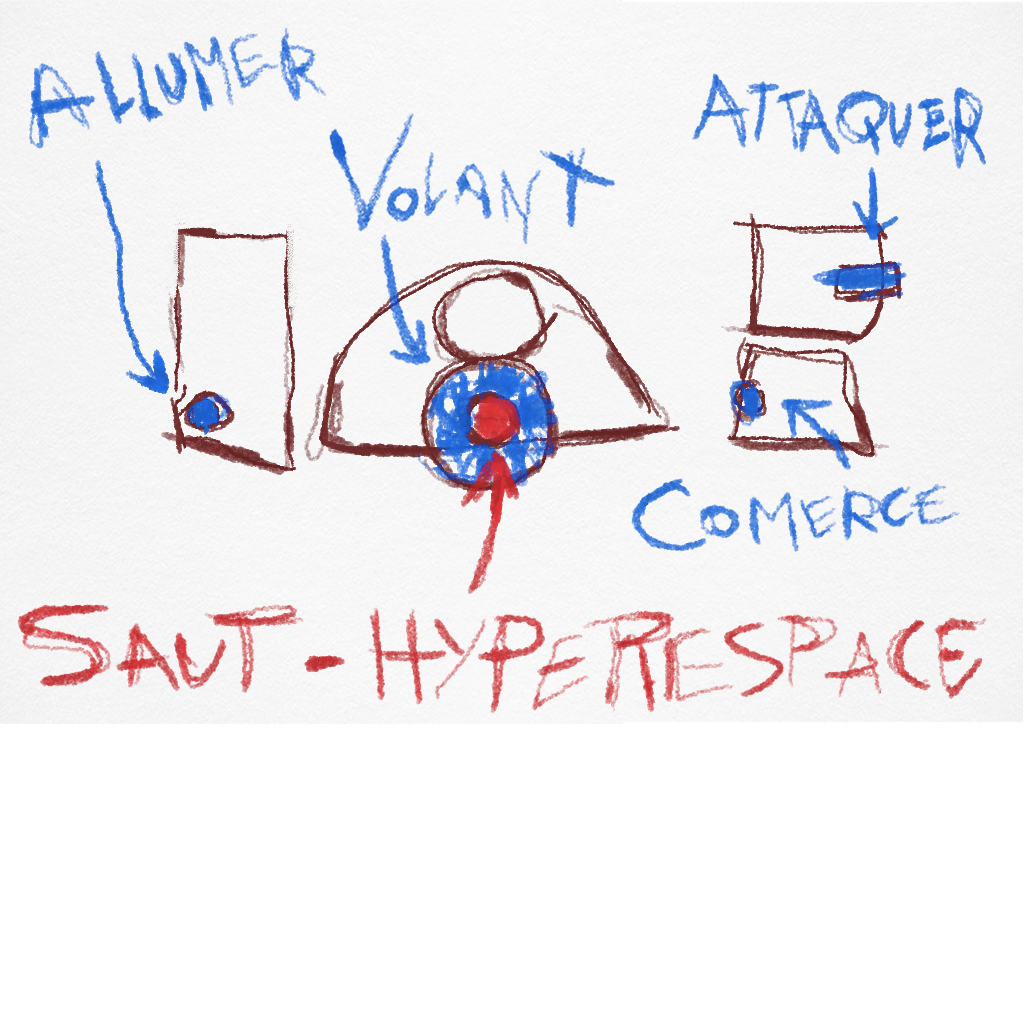 ALLUMER
VOLANT
ATTAQUER
COMERCE
SAUT-HYPERESPACE